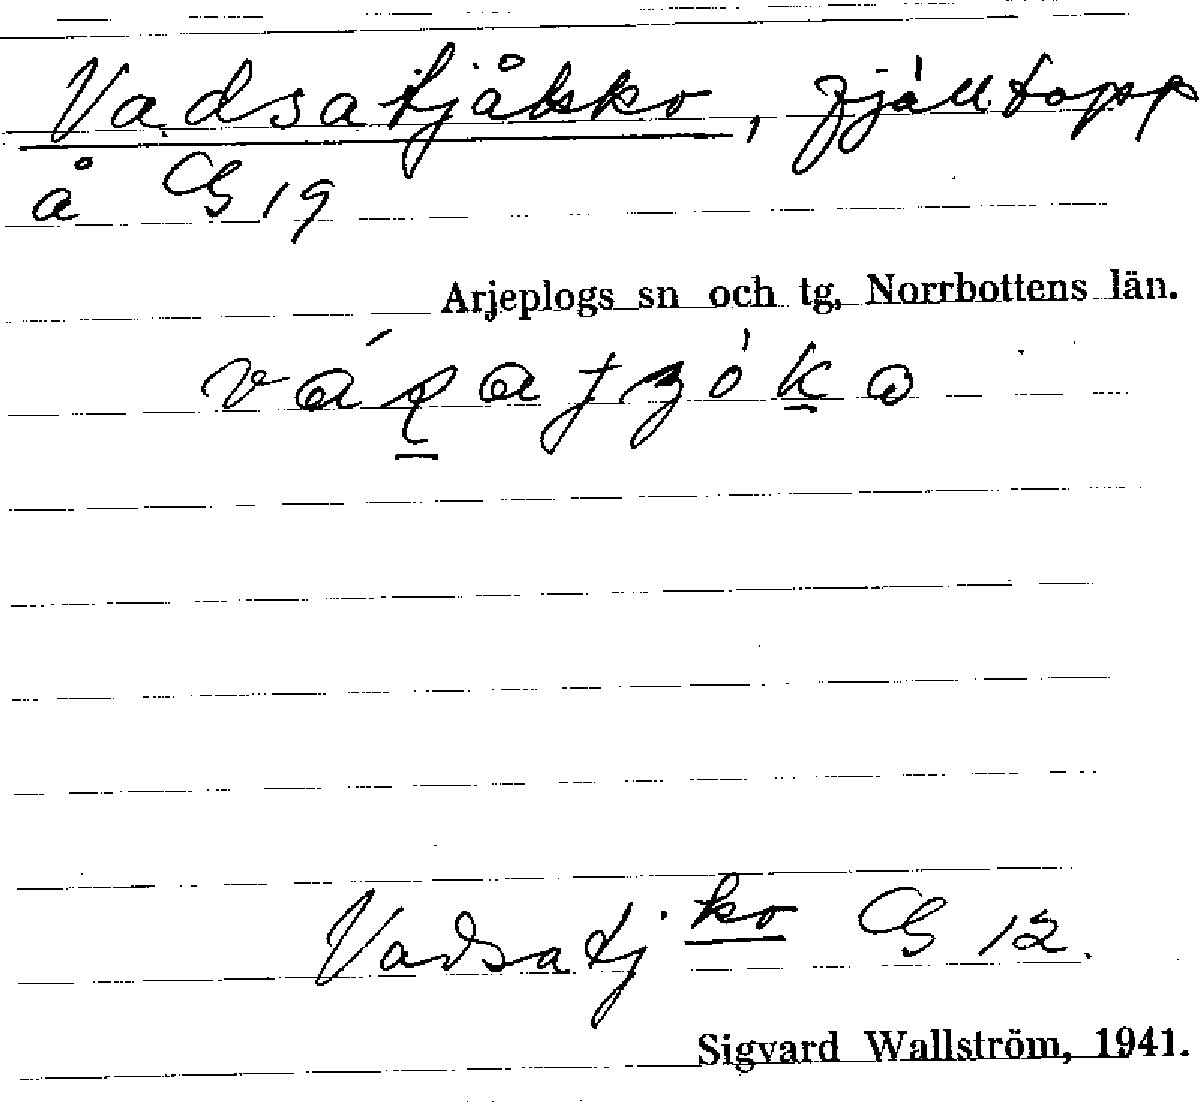 Vadsatjåkko, fjälltopp
å G 19
Arjeplogs sn och tg, Norrbottens län.
Vadsatj. ko G 12.
Sigvard Wallström, 1941.